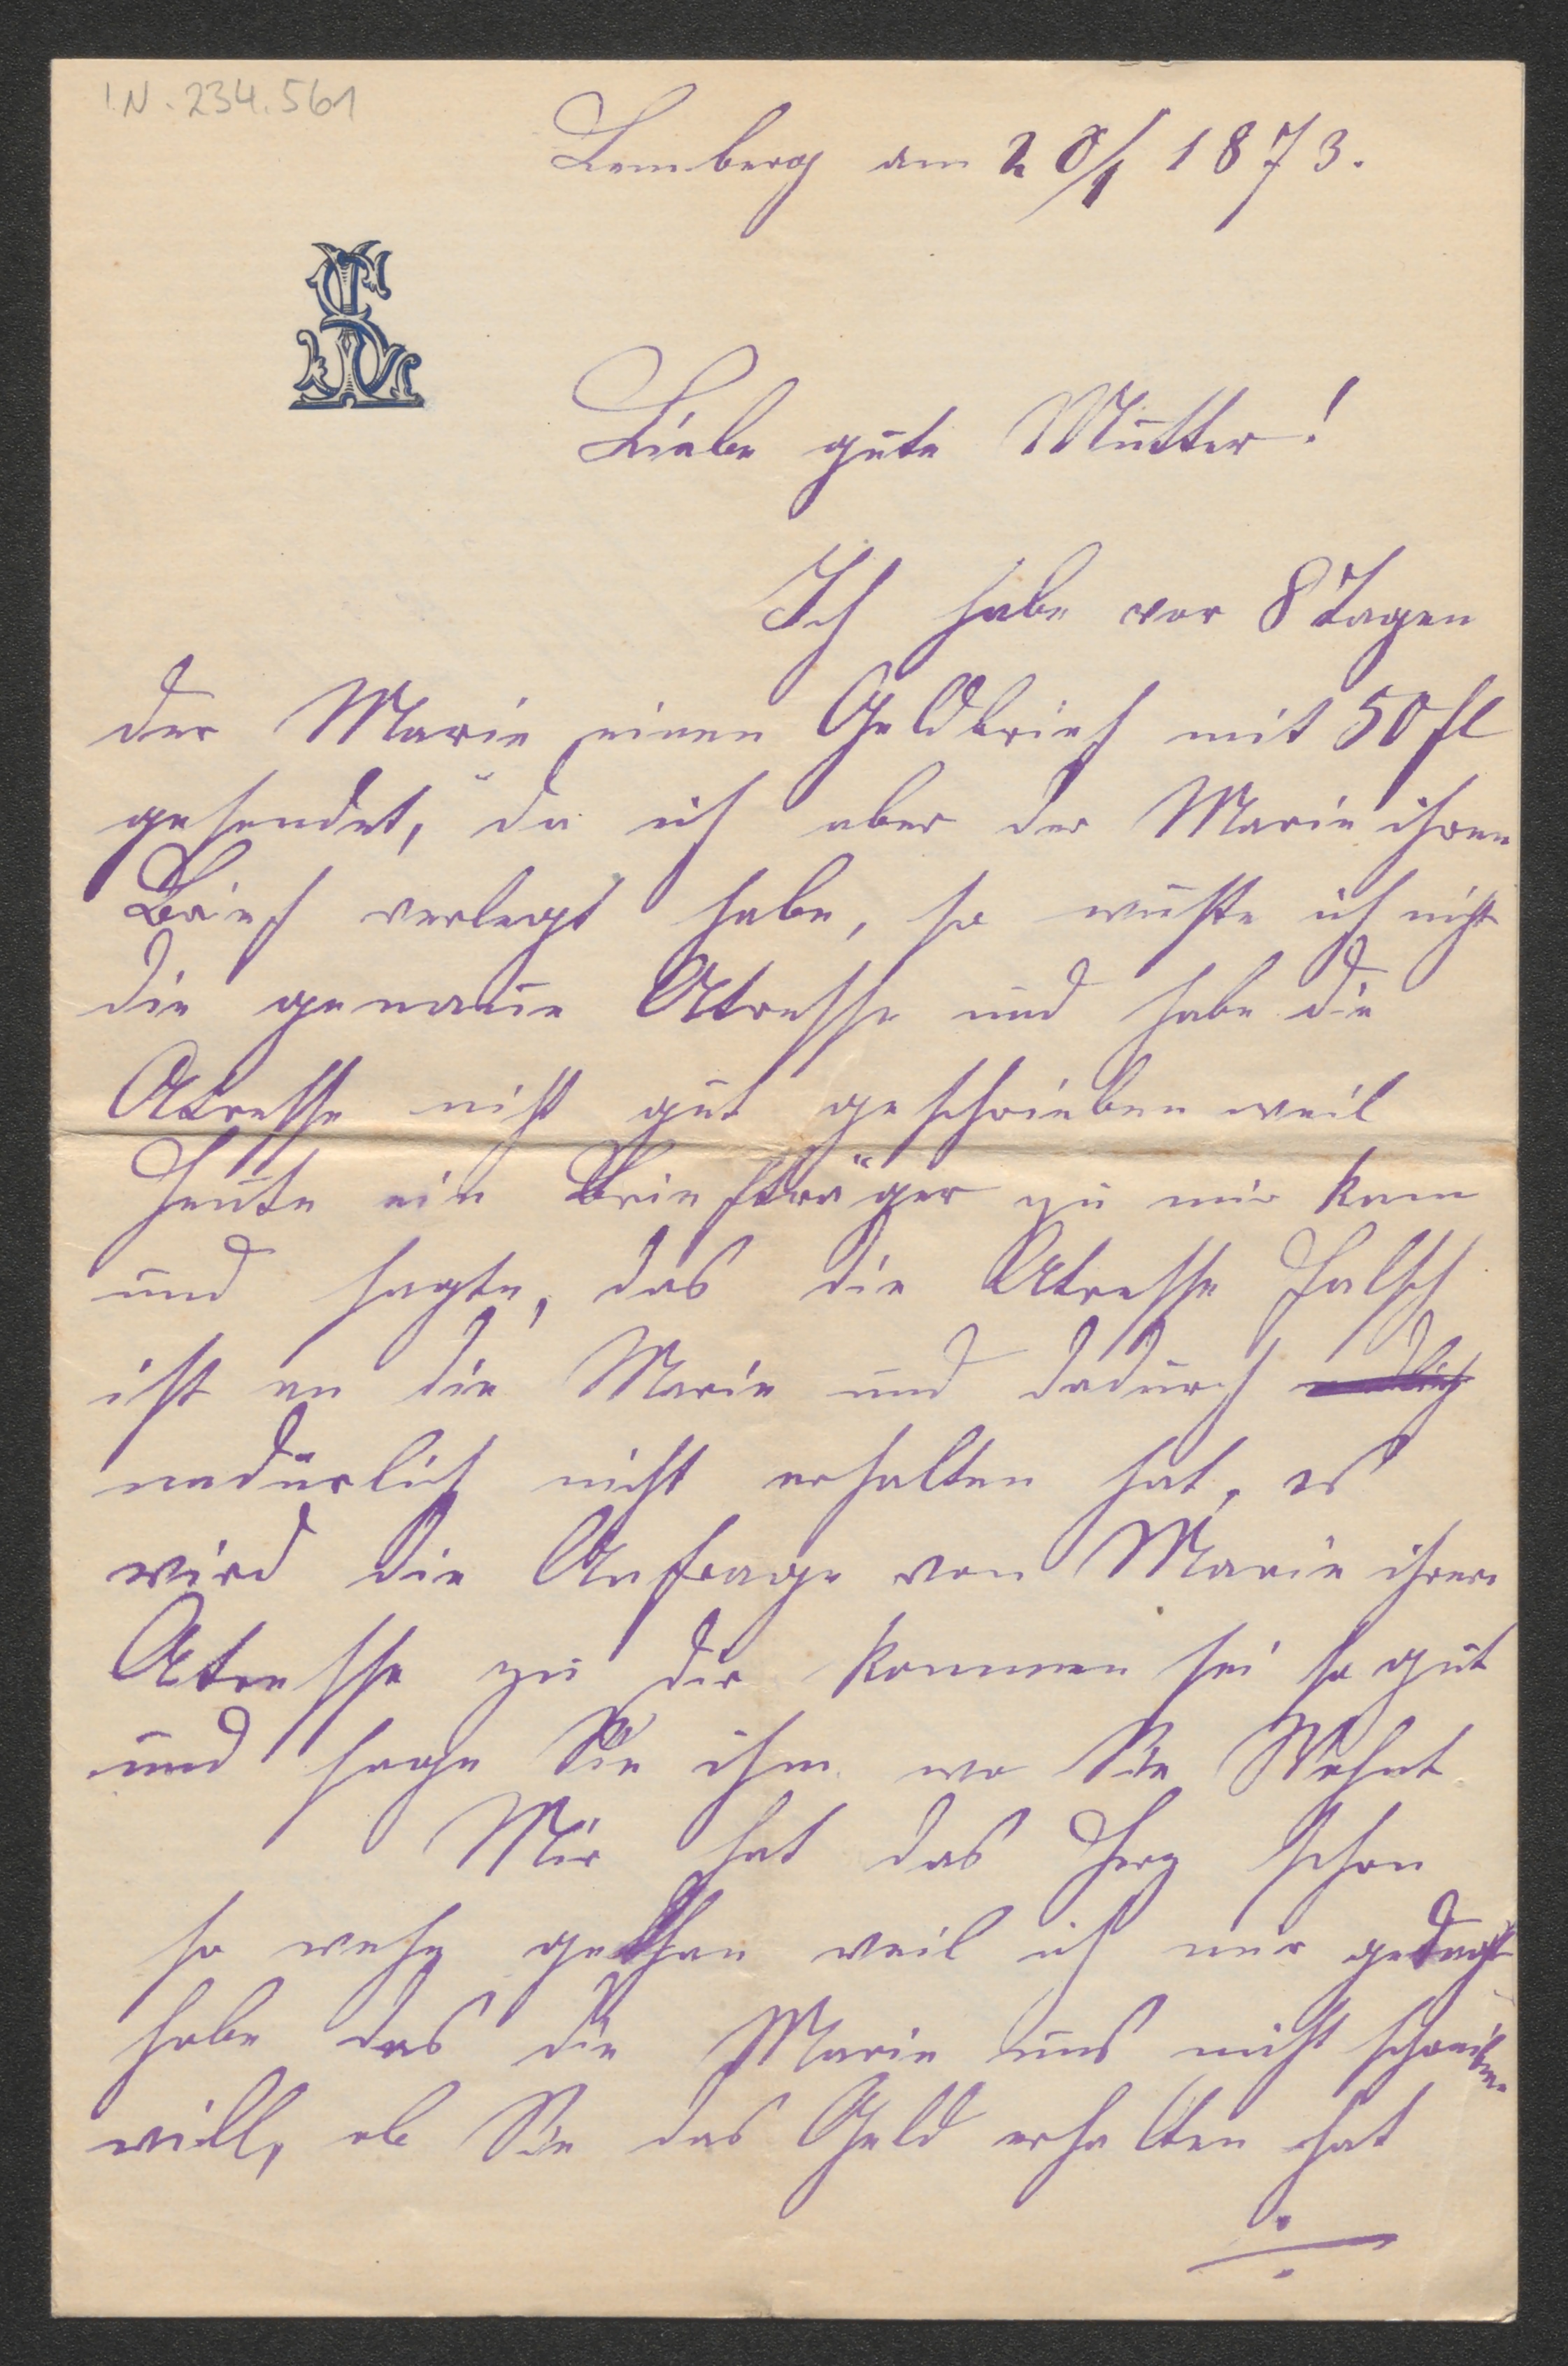 I.N. 234.561
Lemberg am 28/1 1873.
Liebe gute Mutter!
Ich habe vor 8 Tagen
der Marie einen Geldbrief mit 50 fl
gesendet, da ich aber der Marie ihren
Brief verlegt habe, so wußte ich nicht
die genaue Atresse und habe die
Atresse nicht gut geschrieben weil
Heute ein Briefträger zu mir kam
und sagte, das die Atresse Falsch
ist an die Marie und dadurch
nadürlich nicht erhalten hat, es
wird die Anfrage von Marie ihrer
Atresse zu dir kommen sei so gut
und sage Sie ihm wo Sie Wohnt
Mir hat das Herz schon
so wehe gethan weil ich nur gedacht
habe das die Marie uns nicht schreiben
will, ob Sie das Geld erhalten hat